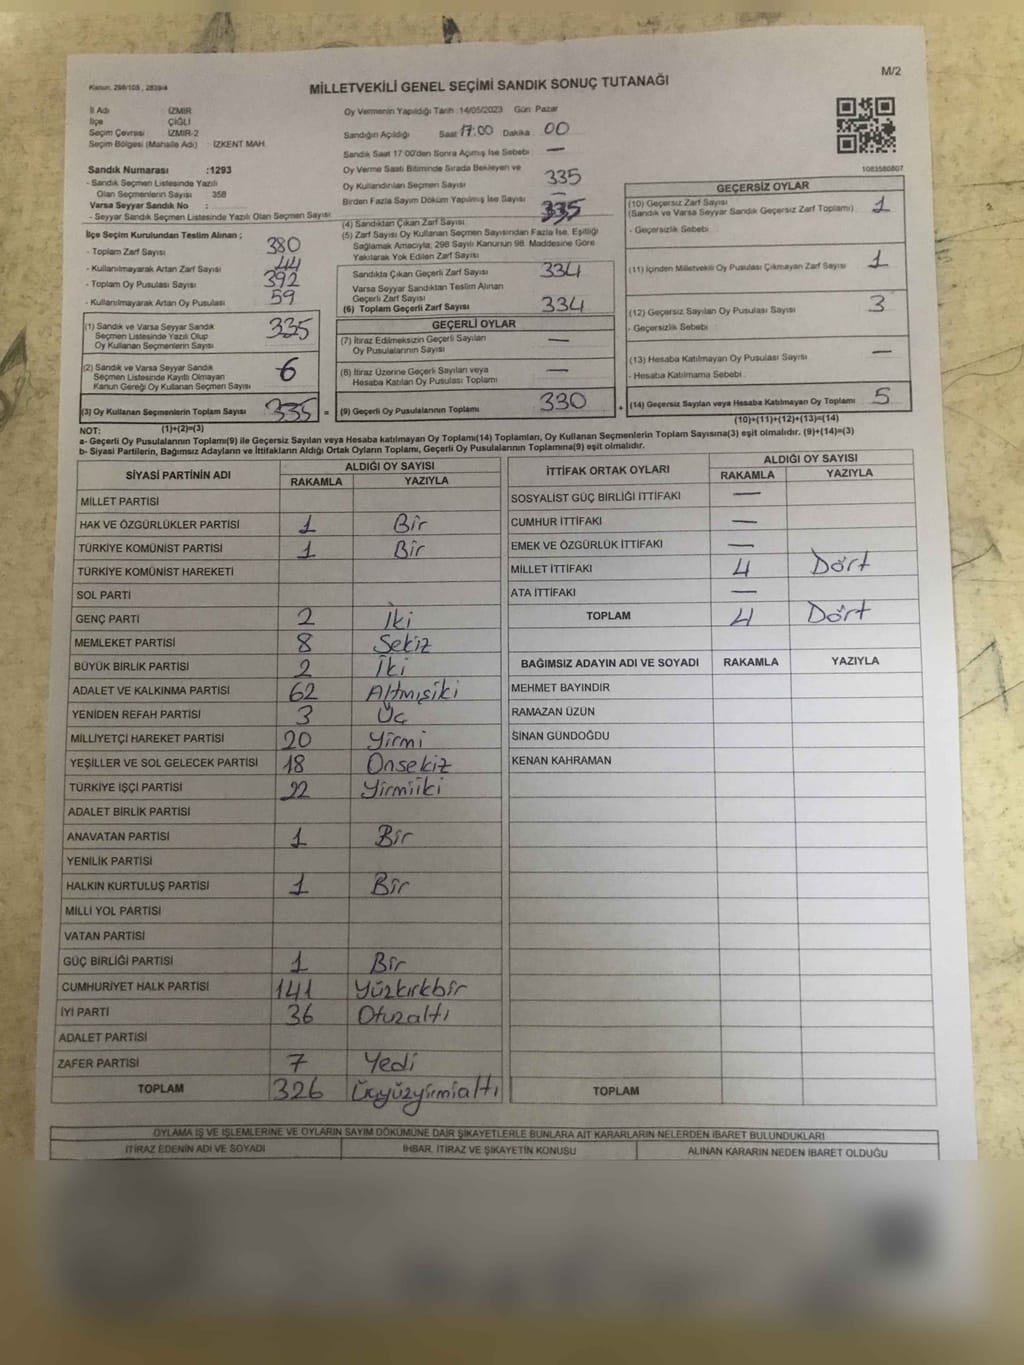 M/2
Kanun: 298/105 , 2839/4
MİLLETVEKİLİ GENEL SEÇİMİ SANDIK SONUÇ TUTANAĞI
İl Adı : İZMİR
İlçe : ÇİĞLİ
Seçim Çevresi : İZMİR-2
Seçim Bölgesi (Mahalle Adı) : İZKENT MAH.
Sandık Numarası :1293
- Sandık Seçmen Listesinde Yazılı
Olan Seçmenlerin Sayısı : 358
Varsa Seyyar Sandık No :
- Seyyar Sandık Seçmen Listesinde Yazılı Olan Seçmen Sayısı :
İlçe Seçim Kurulundan Teslim Alınan ;
- Toplam Zarf Sayısı 380
- Kullanılmayarak Artan Zarf Sayısı 44
- Toplam Oy Pusulası Sayısı 392
- Kullanılmayarak Artan Oy Pusulası 59
(1) Sandık ve Varsa Seyyar Sandık
Seçmen Listesinde Yazılı Olup
Oy Kullanan Seçmenlerin Sayısı 335
(2) Sandık ve Varsa Seyyar Sandık
Seçmen Listesinde Kayıtlı Olmayan
Kanun Gereği Oy Kullanan Seçmen Sayısı 6
(3) Oy Kullanan Seçmenlerin Toplam Sayısı 335 =
(1)+(2)=(3)
Oy Vermenin Yapıldığı Tarih :14/05/2023 Gün: Pazar
Sandığın Açıldığı Saat 17:00 Dakika : 00
Sandık Saat 17:00'den Sonra Açılmış İse Sebebi : —
Oy Verme Saati Bitiminde Sırada Bekleyen ve
Oy Kullandırılan Seçmen Sayısı 335
Birden Fazla Sayım Döküm Yapılmış İse Sayısı —
(4) Sandıktan Çıkan Zarf Sayısı 335
(5) Zarf Sayısı Oy Kullanan Seçmen Sayısından Fazla İse, Eşitliği
Sağlamak Amacıyla, 298 Sayılı Kanunun 98. Maddesine Göre
Yakılarak Yok Edilen Zarf Sayısı
Sandıkta Çıkan Geçerli Zarf Sayısı 334
Varsa Seyyar Sandıktan Teslim Alınan
Geçerli Zarf Sayısı
(6) Toplam Geçerli Zarf Sayısı 334
GEÇERLİ OYLAR
(7) İtiraz Edilmeksizin Geçerli Sayılan
Oy Pusulalarının Sayısı —
(8) İtiraz Üzerine Geçerli Sayılan veya
Hesaba Katılan Oy Pusulası Toplamı —
(9) Geçerli Oy Pusulalarının Toplamı 330 +
1083580807
GEÇERSİZ OYLAR
(10) Geçersiz Zarf Sayısı
(Sandık ve Varsa Seyyar Sandık Geçersiz Zarf Toplamı) 1
- Geçersizlik Sebebi :
(11) İçinden Milletvekili Oy Pusulası Çıkmayan Zarf Sayısı 1
(12) Geçersiz Sayılan Oy Pusulası Sayısı 3
- Geçersizlik Sebebi :
(13) Hesaba Katılmayan Oy Pusulası Sayısı —
- Hesaba Katılmama Sebebi :
(14) Geçersiz Sayılan veya Hesaba Katılmayan Oy Toplamı 5
(10)+(11)+(12)+(13)=(14)
NOT:
a- Geçerli Oy Pusulalarının Toplamı(9) ile Geçersiz Sayılan veya Hesaba katılmayan Oy Toplamı(14) Toplamları, Oy Kullanan Seçmenlerin Toplam Sayısına(3) eşit olmalıdır. (9)+(14)=(3)
b- Siyasi Partilerin, Bağımsız Adayların ve İttifakların Aldığı Ortak Oyların Toplamı, Geçerli Oy Pusulalarının Toplamına(9) eşit olmalıdır.
SİYASİ PARTİNİN ADI ALDIĞI OY SAYISI
RAKAMLA YAZIYLA
MİLLET PARTİSİ
HAK VE ÖZGÜRLÜKLER PARTİSİ 1 Bir
TÜRKİYE KOMÜNİST PARTİSİ 1 Bir
TÜRKİYE KOMÜNİST HAREKETİ
SOL PARTİ
GENÇ PARTİ 2 İki
MEMLEKET PARTİSİ 8 Sekiz
BÜYÜK BİRLİK PARTİSİ 2 İki
ADALET VE KALKINMA PARTİSİ 62 Altmışiki
YENİDEN REFAH PARTİSİ 3 Üç
MİLLİYETÇİ HAREKET PARTİSİ 20 Yirmi
YEŞİLLER VE SOL GELECEK PARTİSİ 18 Onsekiz
TÜRKİYE İŞÇİ PARTİSİ 22 Yirmiiki
ADALET BİRLİK PARTİSİ
ANAVATAN PARTİSİ 1 Bir
YENİLİK PARTİSİ
HALKIN KURTULUŞ PARTİSİ 1 Bir
MİLLİ YOL PARTİSİ
VATAN PARTİSİ
GÜÇ BİRLİĞİ PARTİSİ 1 Bir
CUMHURİYET HALK PARTİSİ 141 Yüzkırkbir
İYİ PARTİ 36 Otuzaltı
ADALET PARTİSİ
ZAFER PARTİSİ 7 Yedi
TOPLAM 326 Üçyüzyirmialtı
İTTİFAK ORTAK OYLARI ALDIĞI OY SAYISI
RAKAMLA YAZIYLA
SOSYALİST GÜÇ BİRLİĞİ İTTİFAKI —
CUMHUR İTTİFAKI —
EMEK VE ÖZGÜRLÜK İTTİFAKI —
MİLLET İTTİFAKI 4 Dört
ATA İTTİFAKI —
TOPLAM 4 Dört
BAĞIMSIZ ADAYIN ADI VE SOYADI RAKAMLA YAZIYLA
MEHMET BAYINDIR
RAMAZAN ÜZÜN
SİNAN GÜNDOĞDU
KENAN KAHRAMAN
TOPLAM
OYLAMA İŞ VE İŞLEMLERİNE VE OYLARIN SAYIM DÖKÜMÜNE DAİR ŞİKAYETLERLE BUNLARA AİT KARARLARIN NELERDEN İBARET BULUNDUKLARI
İTİRAZ EDENİN ADI VE SOYADI İHBAR, İTİRAZ VE ŞİKAYETİN KONUSU ALINAN KARARIN NEDEN İBARET OLDUĞU